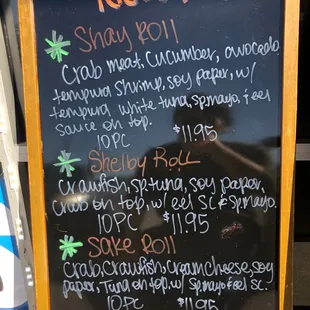 Shay Roll
Crab meat, cucumber, avocado
tempura shrimp, soy paper, w/
tempura white tuna, sp.mayo, & eel
sauce on top.
10PC $11.95
Shelby Roll
Crawfish, sp.tuna, soy paper,
crab on top, w/ eel sc. & sp.mayo.
10PC $11.95
Sake Roll
Crab, crawfish, cream cheese, soy
paper, Tuna on top, w/ sp.mayo & eel sc.
10PC $11.95